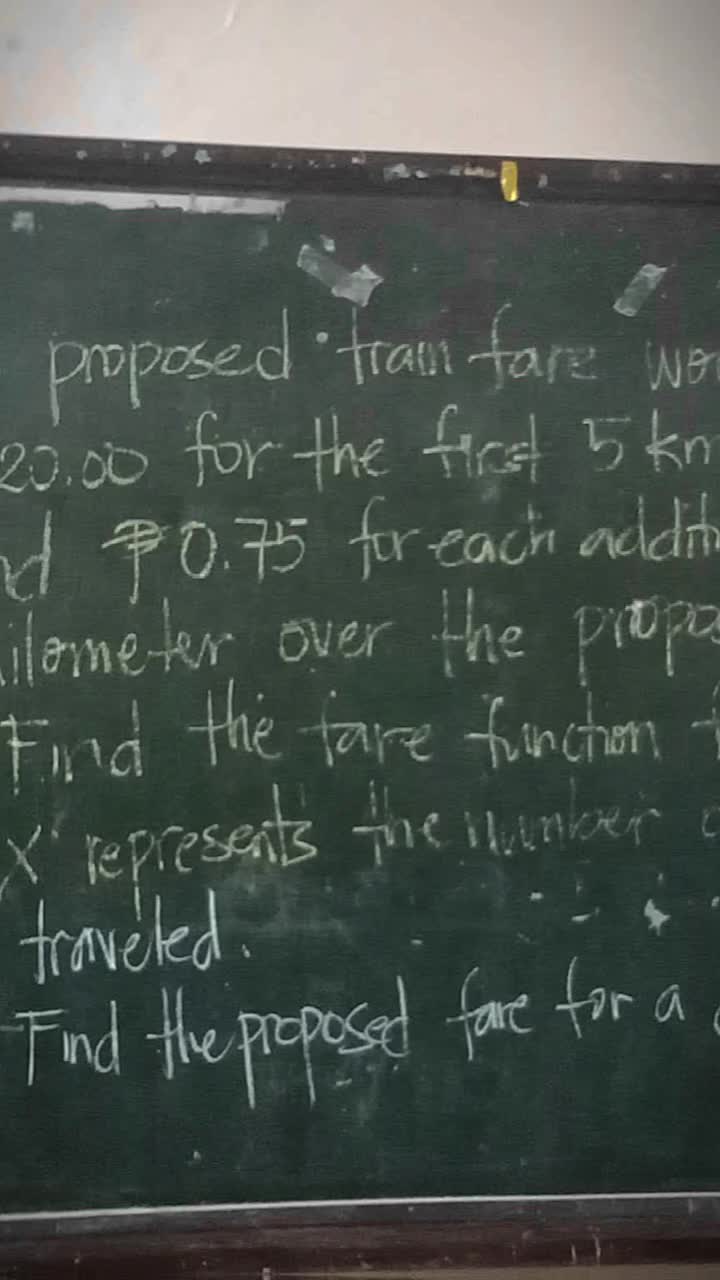 proposed train fare wo
20.00 for the first 5 km
nd ₱0.75 for each additi
ilometer over the propo
Find the fare function f
x represents the number o
traveled.
Find the proposed fare for a